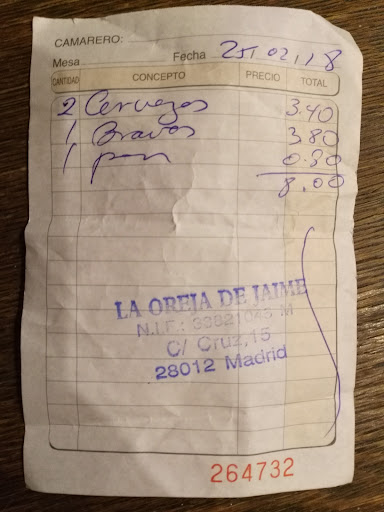 CAMARERO:
Mesa Fecha 25/02/18
CANTIDAD CONCEPTO PRECIO TOTAL
2 Cervezas 3.40
1 Bravas 3.80
1 pan 0.80
8.00
LA OREJA DE JAIME
N.I.F.: M
C/ Cruz,15
28012 Madrid
264732